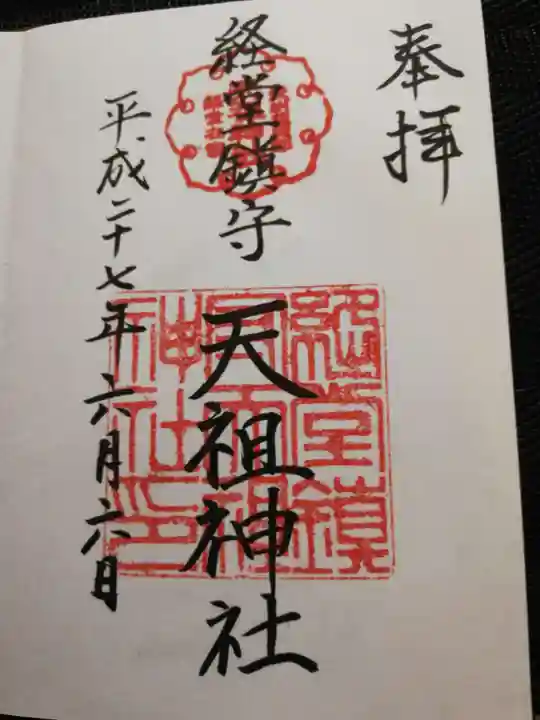 奉拝
経堂鎮守
天祖神社
平成二十七年六月六日
経堂鎮
守天祖
神社印